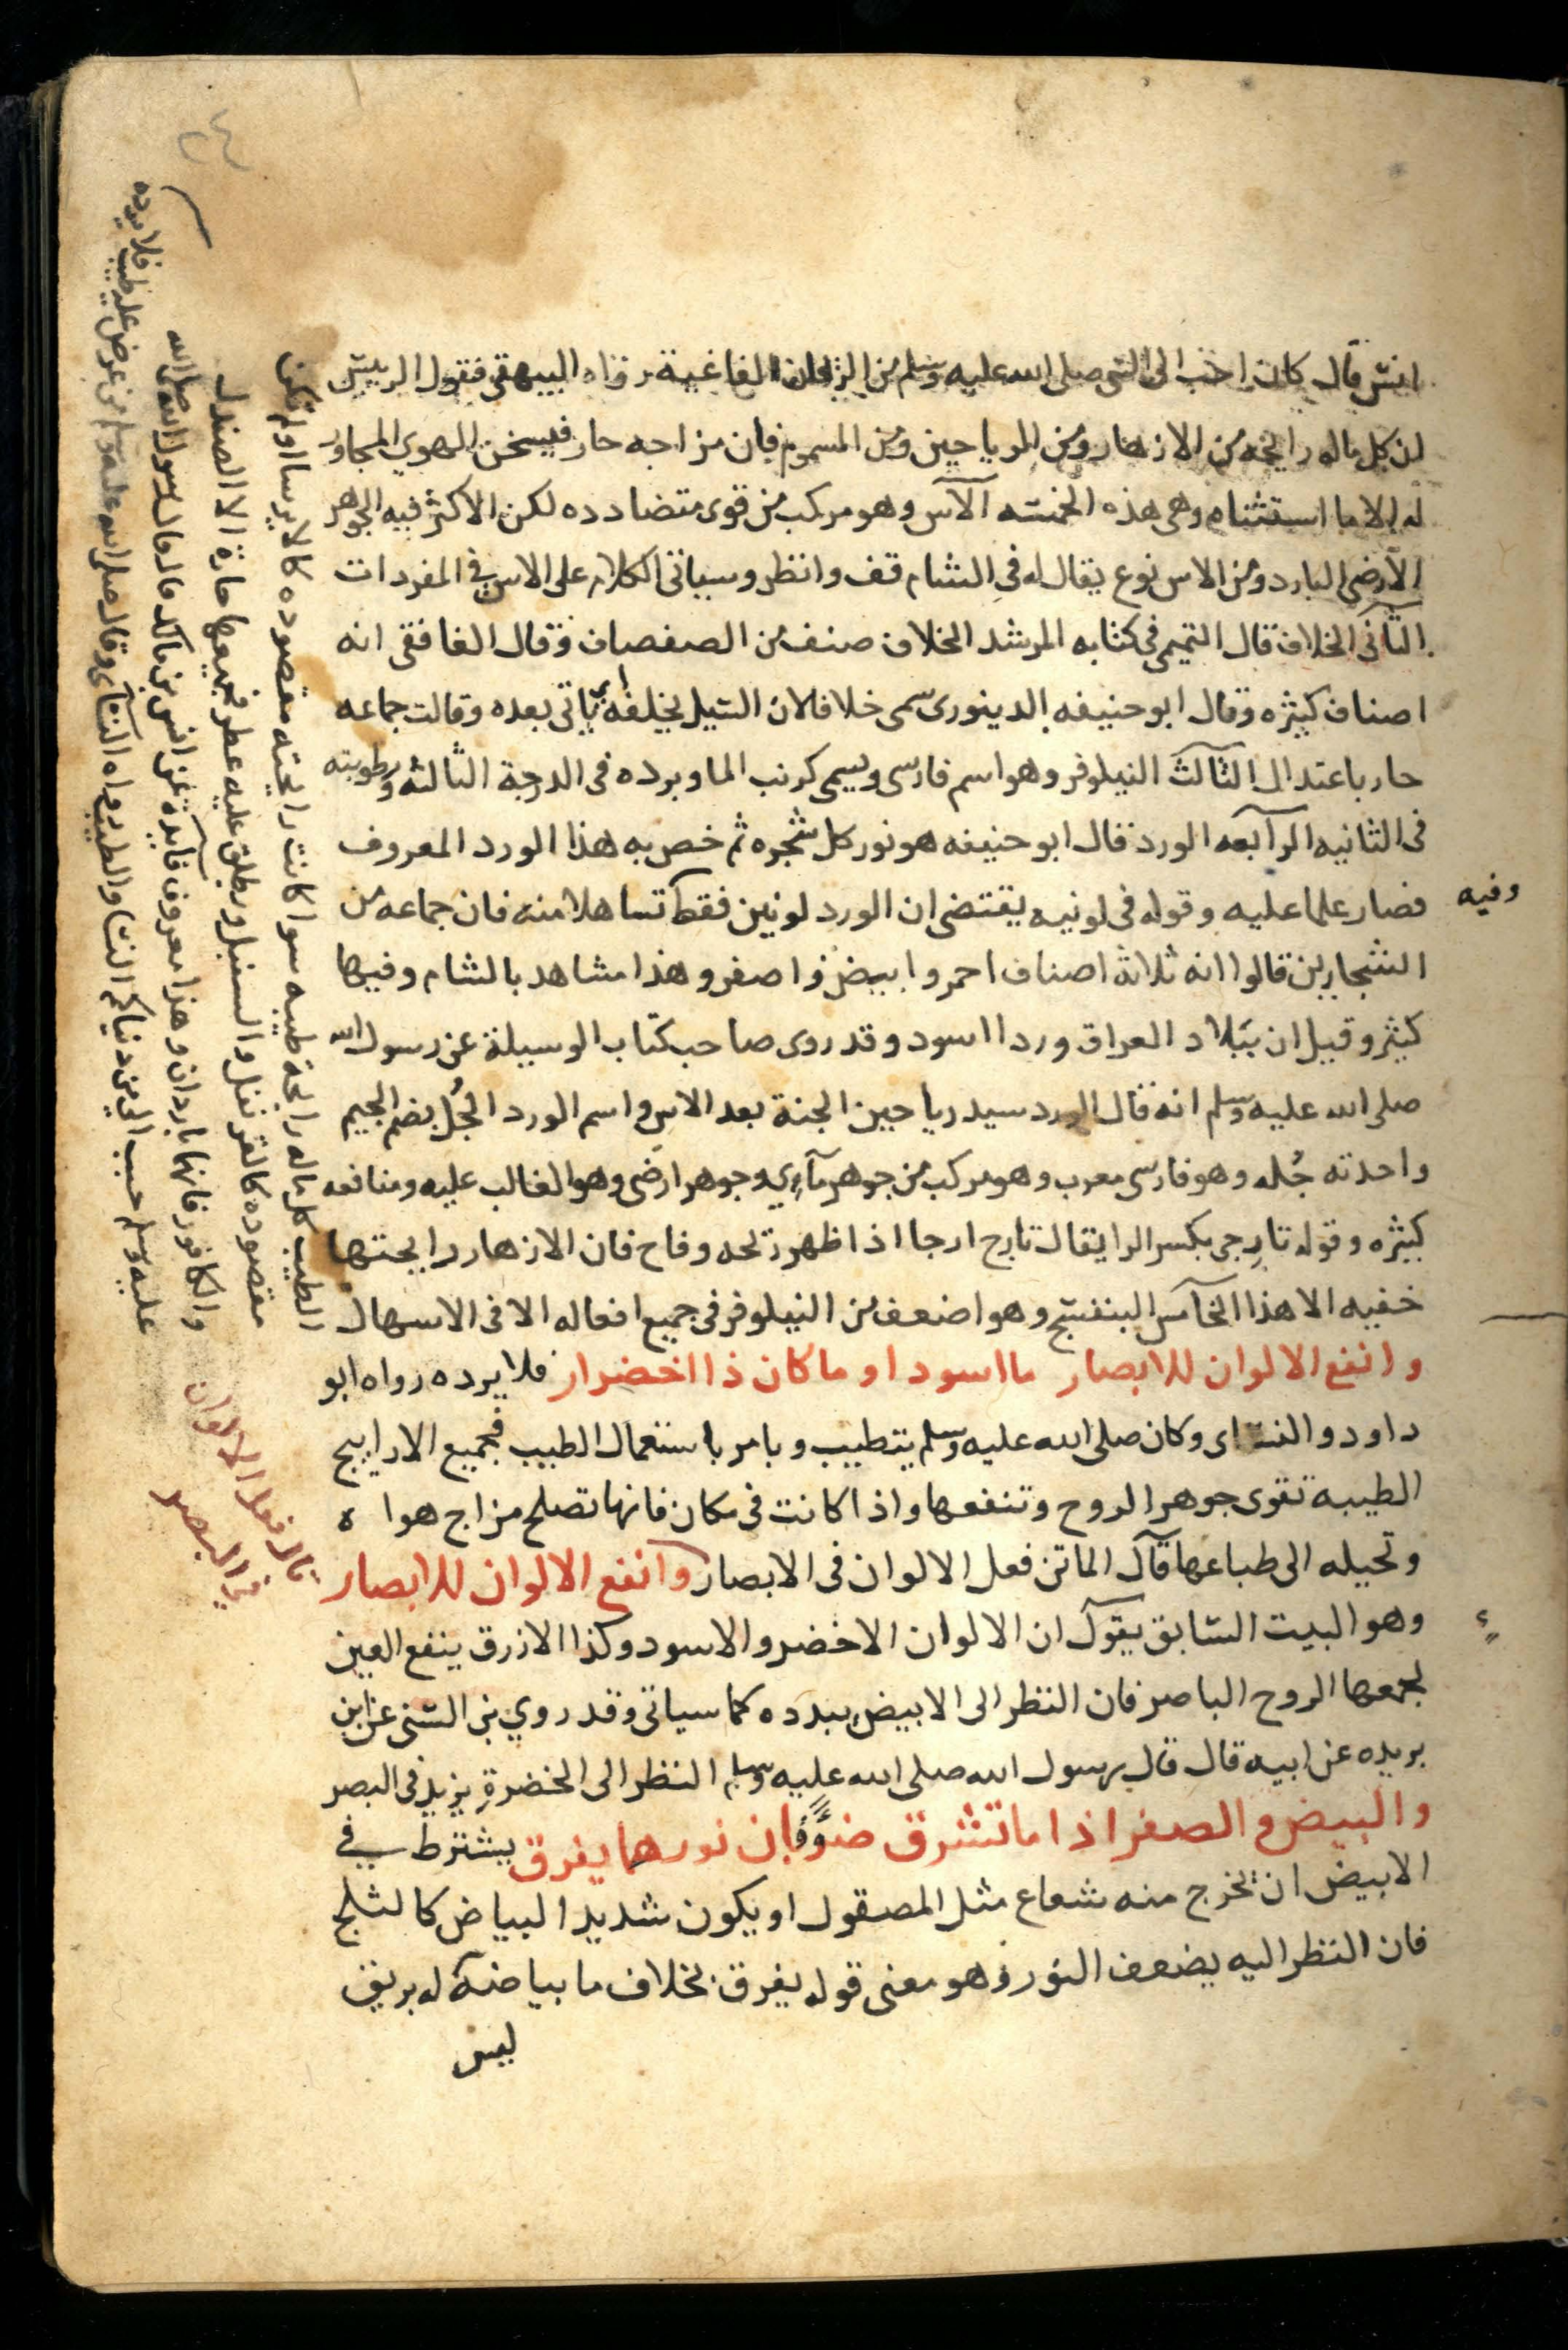 انس قال كان احب الى النبي صلى الله عليه وسلم من الريحان الفاغية رواه البيهقي فقول الرييس
ان كل ماله رايحه من الازهار ومن الرياحين ومن المسموم فان مزاجه حار فيسخن الهوي المجاور
له الا ما استثناه وهي هذه الخمسه الآس وهو مركب من قوى متضادده لكن الاكثر فيه الجوهر
الارضي البارد ومن الاس نوع يقال له في الشام قف وانظر وسياتي الكلام على الاس في المفردات
الثاني الخلاف قال التميمي في كتابه المرشد الخلاف صنف من الصفصاف وقال الغافقي انه
اصناف كثيره وقال ابو حنيفه الدينوري سمي خلافا لان السيل يخلفه اي ياتي بعده وقالت جماعه
حار باعتدال الثالث النيلوفر وهو اسم فارسي ويسمى كرنب الما وبرده في الدرجة الثالثه ورطوبته
في الثانيه الرابعه الورد قال ابو حنيفه هو نور كل شجره ثم خص به هذا الورد المعروف
فصار علما عليه وقوله في لونيه يقتضي ان الورد لونين فقط تساهلا منه فان جماعه من
وفيه
الشجارين قالوا انه ثلاثة اصناف احمر وابيض واصفر وهذا مشاهد بالشام وفيها
كثير وقيل ان ببلاد العراق ورد اسود وقد روى صاحب كتاب الوسيلة عن رسول الله
صلى الله عليه وسلم انه قال الورد سيد رياحين الجنة بعد الاس واسم الورد الجُل بضم الجيم
واحدته جُله وهو فارسي معرب وهو مركب من جوهر مآءي وجوهر ارضي وهو الغالب عليه ومنافعه
كثيره وقوله تارجي بكسر الرا يقال تارج ارجا اذا ظهر رتحه وفاح فان الازهار رايحتها
خفيه الا هذا الخامس البنفسج وهو اضعف من النيلوفر في جميع افعاله الا في الاسهال
وانفع الالوان للابصار ما اسود او ما كان ذا اخضرار فلا يرده رواه ابو
داود والنساى وكان صلى الله عليه وسلم يتطيب ويامر باستعمال الطيب فجميع الاراييج
الطيبه تقوى جوهر الروح وتنفعها واذا كانت في مكان فانها تصلح مزاج هوا ه
وتحيله الى طباعها قال الماتن فعل الالوان في الابصار وانفع الالوان للابصار
وهو البيت السابق يقول ان الالوان الاخضر والاسود وكذا الازرق ينفع العين
لجمعها الروح الباصر فان النظر الى الابيض يبدده كما سياتي وقد روي بن السني عن ابن
بريده عن ابيه قال قال رسول الله صلى الله عليه وسلم النظر الى الخضرة يزيد في البصر
والبيض والصفر اذا ما تشرق ضوًا فان نورها يفرق يشترط في
الابيض ان يخرج منه شعاع مثل المصقول او يكون شديد البياض كالثلج
فان النظر اليه يضعف النور وهو معنى قوله يفرق بخلاف ما بياضه له بريق
ليس
الطيب كل ماله رايحة طيبه سوا كانت رايحته مقصوده كالايرسا او لم تكن
مقصوده كالقرنفل والسنبل ويطلق عليه عطر فجميعها حارة الا الصندل
والكافور فانهما باردان وهذا معروف فايدة عن انس بن مالك قال قال رسول الله صلى الله
عليه وسلم حبب الي من دنياكم النسا والطيب رواه النساى وقال صلى الله عليه وسلم من عرض عليه طيب فلا يرده
تار فعل الالوان
في البصر